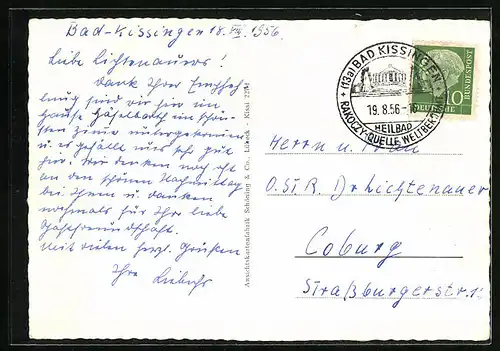 Bad-Kissingen 18. VIII. 1956.
Liebe Lichtenauers!
Dank Ihrer Empfeh-
lung sind wir hier im
Hause Häfelbach im schön-
sten Zimmer untergekommen
u. es gefällt uns sehr gut
hier. Wir denken noch oft
an den schönen Nachmittag
bei Ihnen u. danken
nochmals für Ihre liebe
Gastfreundschaft.
Mit vielen herzl. Grüßen
Ihre
Ansichtskartenfabrik Schöning & Co., Lübeck
(13a) BAD KISSINGEN
19. 8. 56
HEILBAD
RAKOCZY-QUELLE WELTBEKANNT
DEUTSCHE
BUNDESPOST
10
Herrn u. Frau
O.St.R. Dr Lichtenauer
Coburg
Straßburgerstr.